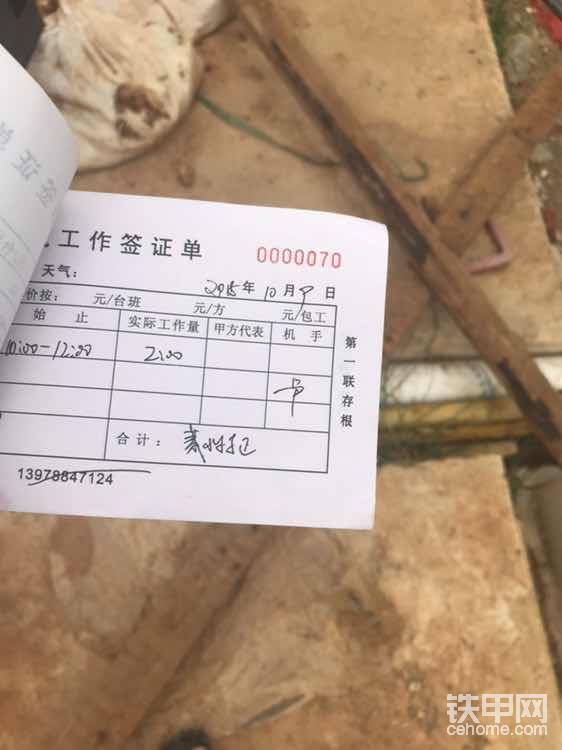 工作签证单 0000070
天气： 2018年10月9日
价按： 元/台班 元/方 元/包工
始 止 实际工作量 甲方代表 机 手
10:00-12:00 2:00
合计：
13978847124
第一联存根
铁甲网
cehome.com